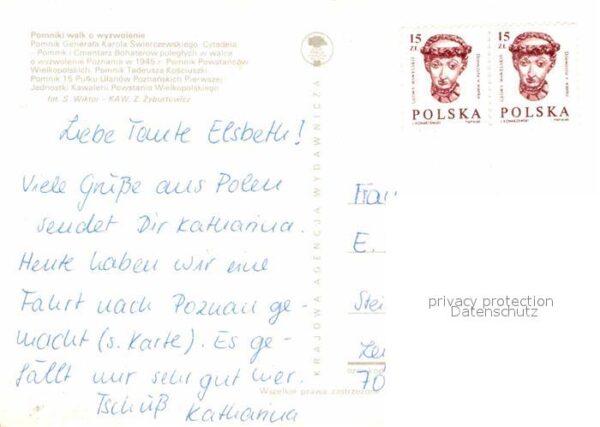 Pomniki walk o wyzwolenie
Pomnik Generała Karola Świerczewskiego. Cytadela
- Pomnik i Cmentarz Bohaterów poległych w walce
o wyzwolenie Poznania w 1945 r. Pomnik Powstańców
Wielkopolskich. Pomnik Tadeusza Kościuszki
Pomnik 15 Pułku Ułanów Poznańskich Pierwszej
Jednostki Kawalerii Powstania Wielkopolskiego
fot. S. Wiktor - KAW, Z. Żyburtowicz
Liebe Tante Elsbeth!
Viele Grüße aus Polen
sendet Dir Katharina.
Heute haben wir eine
Fahrt nach Poznan ge-
macht (s. Karte). Es ge-
fällt mir sehr gut hier.
Tschüß Katharina
KRAJOWA AGENCJA WYDAWNICZA
Wszelkie prawa zastrzeżone
15 ZŁ
POLSKA
15 ZŁ
POLSKA
Frau
E.
Stei
70
privacy protection
Datenschutz